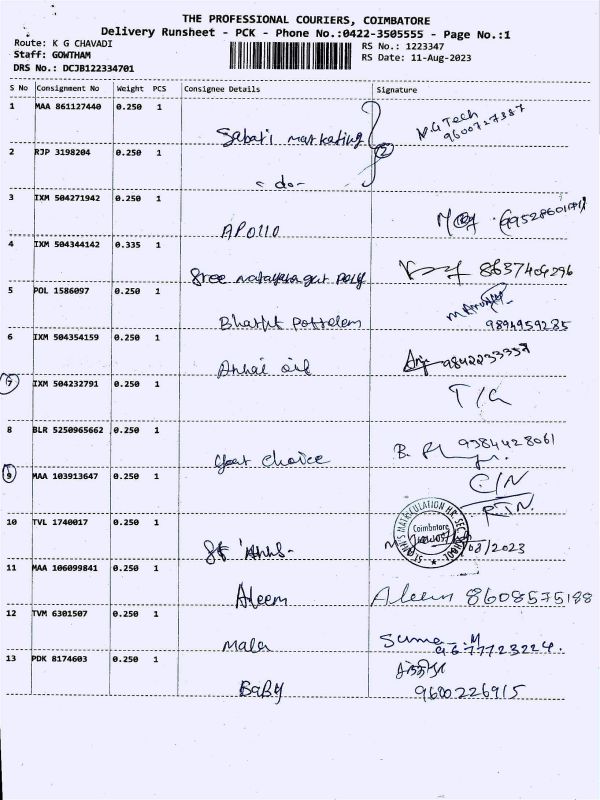 THE PROFESSIONAL COURIERS, COIMBATORE
Delivery Runsheet - PCK - Phone No.:0422-3505555 - Page No.:1
Route: K G CHAVADI
RS No.: 1223347
Staff: GOWTHAM
RS Date: 11-Aug-2023
DRS No.: DCJB122334701
S No Consignment No Weight PCS Consignee Details Signature
1 MAA 861127440 0.250 1
Sabari marketing
N.G Tech
9600727387
2 RJP 3198204 0.250 1
2
- do -
3 IXM 504271942 0.250 1
APOLLO
4 IXM 504344142 0.335 1
Sree
8637409296
5 POL 1586097 0.250 1
Bharat
9894959285
6 IXM 504354159 0.250 1
Annai oil
9842233357
7 IXM 504232791 0.250 1
T/C
8 BLR 5250965662 0.250 1
Choice
9384428061
9 MAA 103913647 0.250 1
C/N
RTN.
10 TVL 1740017 0.250 1
ST. ANN'S MATRICULATION HR. SEC. SCHOOL
Coimbatore
/08/2023
11 MAA 106099841 0.250 1
Aleem
Aleem 8608575188
12 TVM 6301507 0.250 1
Mala
Suma - M
9677723224.
13 PDK 8174603 0.250 1
BaBy
9600226915